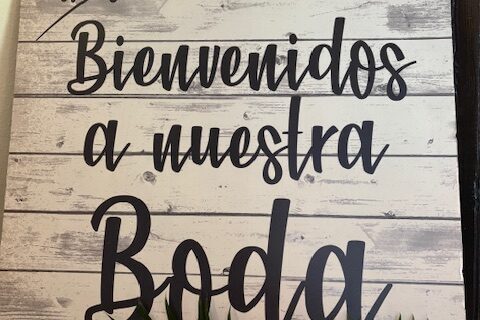 Bienvenidos
a nuestra
Boda